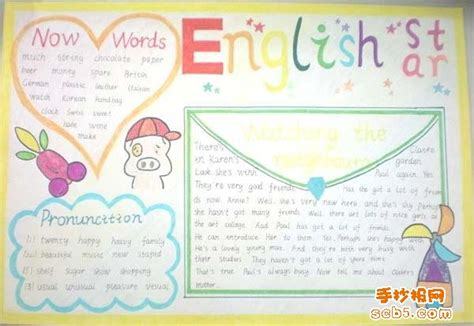 Now Words
much spring chocolate paper
beer money spare British
German plastic leather Italian
watch Korean handbag
clock Swiss sweet
hate swine
make
English Star
Pronuncition
[i] twenty happy heavy family
beautiful music new stupid
[ʃ] shelf sugar show shopping
[ʒ] usual unusual pleasure usual
Watching the
neighbours
There's Claire
in Karen's garden.
Look she's with Paul again. Yes.
They're very good friends. Has she got a lot of friends
do now Anna? Well, she's very new here and she's shy Perhaps
she hasn't got many friends Well, there are lots of nice girls at
the art college. And Paul has got a lot of friends.
He can introduce her to them. Yes. Perhaps she's happy with
And they're both very busy with
their studies. They haven't got a lot of spare time.
That's true Paul's always busy. Now tell me about
mother...
手抄报网
scb5.com